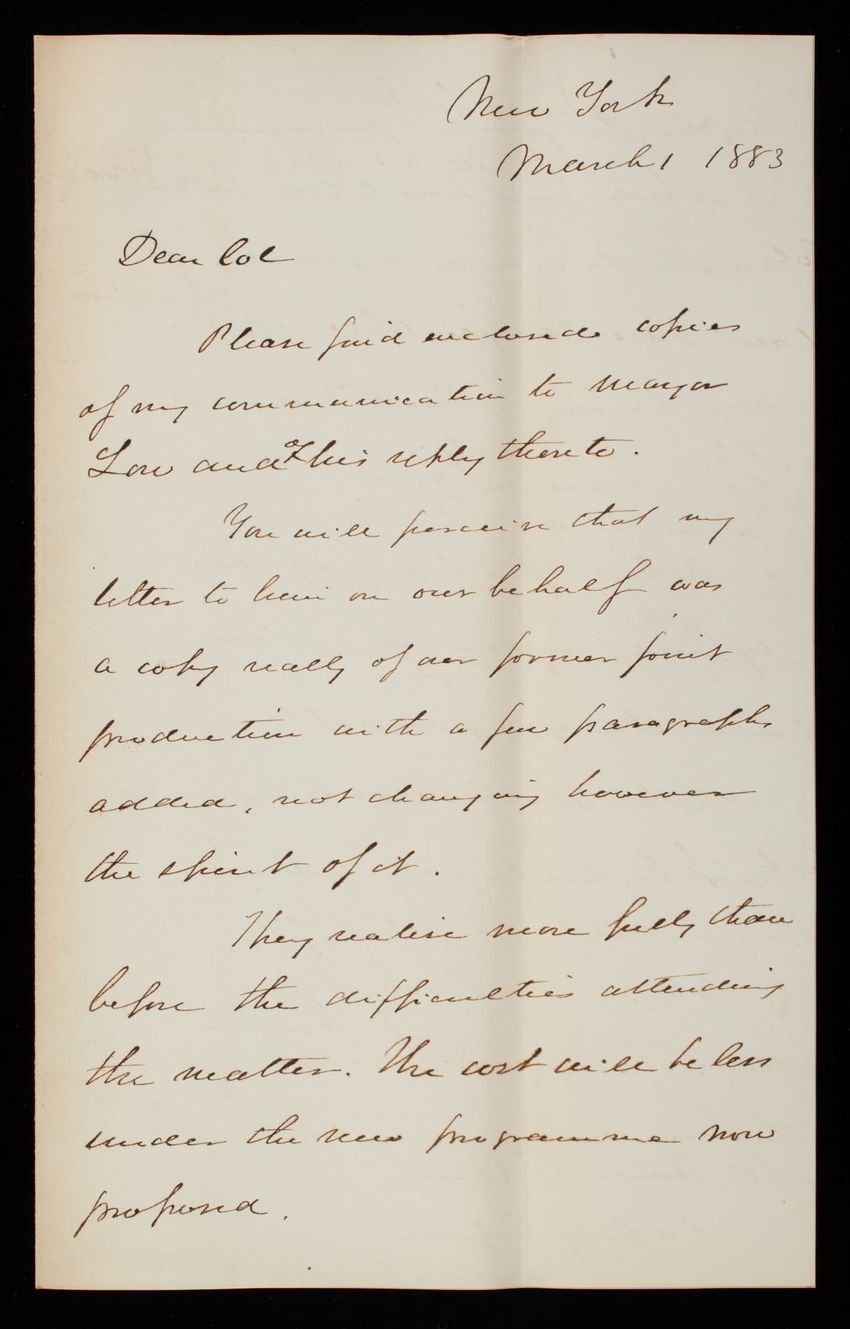 New York
March 1 1883
Dear Col
Please find enclosed copies
of my communication to Mayor
Low and of his reply thereto.
You will perceive that my
letter to him on our behalf was
a copy really of our former joint
production with a few paragraphs
added, not changing however
the spirit of it.
They realise more fully than
before the difficulties attending
the matter. The cost will be less
under the new programme now
proposed.